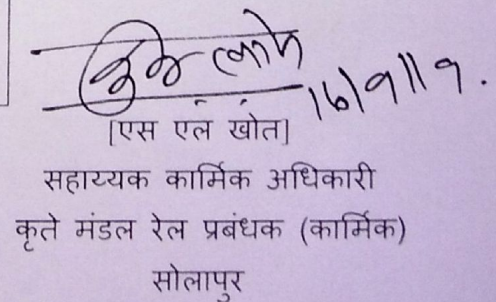 [एस एल खोत]
सहाय्यक कार्मिक अधिकारी
कृते मंडल रेल प्रबंधक (कार्मिक)
सोलापुर